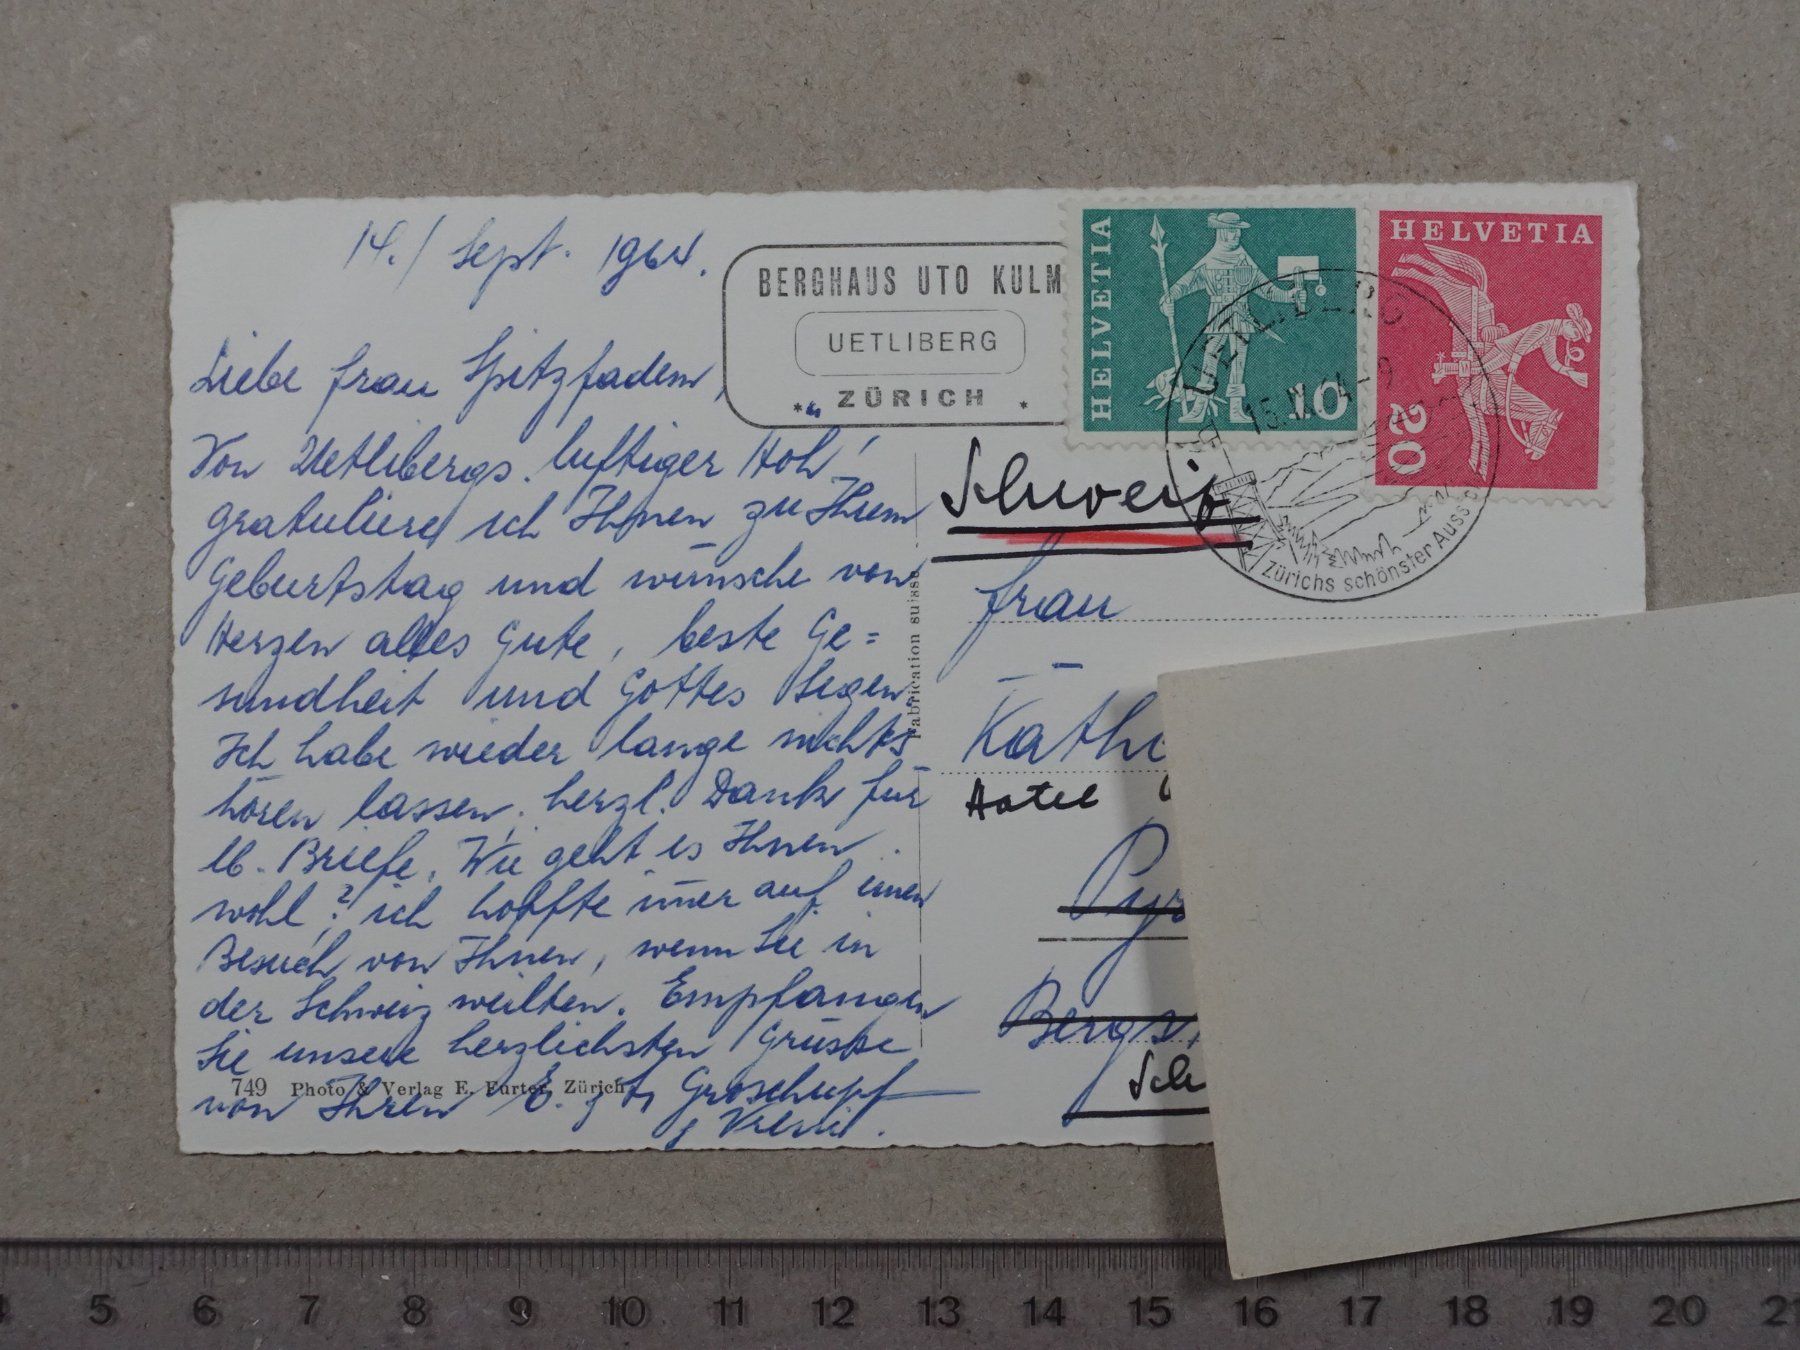 14./ Sept. 1964.
BERGHAUS UTO KULM
UETLIBERG
* ZÜRICH *
HELVETIA
10
HELVETIA
20
UETLIBERG
15.IX.64-9
Zürichs schönster Aussp
Liebe Frau Spitzfadem,
Von Uetlibergs "luftiger Höh'
gratuliere ich Ihnen zu Ihrem
Geburtstag und wünsche von
Herzen alles Gute, beste Ge=
sundheit und Gottes Segen.
Ich habe wieder lange nichts
hören lassen, herzl. Dank für
lb. Briefe. Wie geht es Ihnen
wohl? ich hoffte imer auf einen
Besuch von Ihnen, wenn Sie in
der Schweiz weilten. Empfangen
Sie unsere herzlichsten Grüsse
von Ihren E. Groschupf
749 Photo & Verlag E. Furter, Zürich
Fabrication suisse
Schweiz
Frau
Kath
Hotel
Pyr
Bergs
Sch
4 5 6 7 8 9 10 11 12 13 14 15 16 17 18 19 20 21